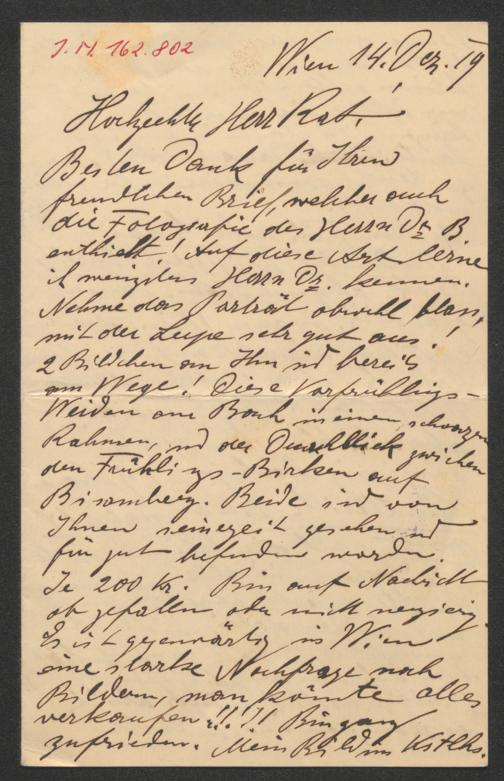 J. N. 162.802
Wien 14. Dez. 19
Herr Rat!
Besten Dank für Ihren
freundlichen Brief, welcher auch
die Fotografie des Herrn Dr B
enthielt! Auf diese Art lerne
ich wenigstens Herrn Dr. kennen.
Nehme das Porträt obwohl blass,
mit der Lupe sehr gut aus!
2 Bildchen an Ihn sind bereits
am Wege! Diese Vorfrühlings-
Weiden am Bach in einem schwarzen
Rahmen, und der Durchblick zwischen
den Frühlings-Birken auf
Bisamberg. Beide sind von
Ihnen seinerzeit gesehen und
für gut befunden worden.
Je 200 Kr. Bin auf Nachricht
ob gefallen oder nicht neugierig.
Es ist gegenwärtig in Wien
eine starke Nachfrage nach
Bildern, man könnte alles
verkaufen!!!! Bin ganz
zufrieden. Mein Bild im